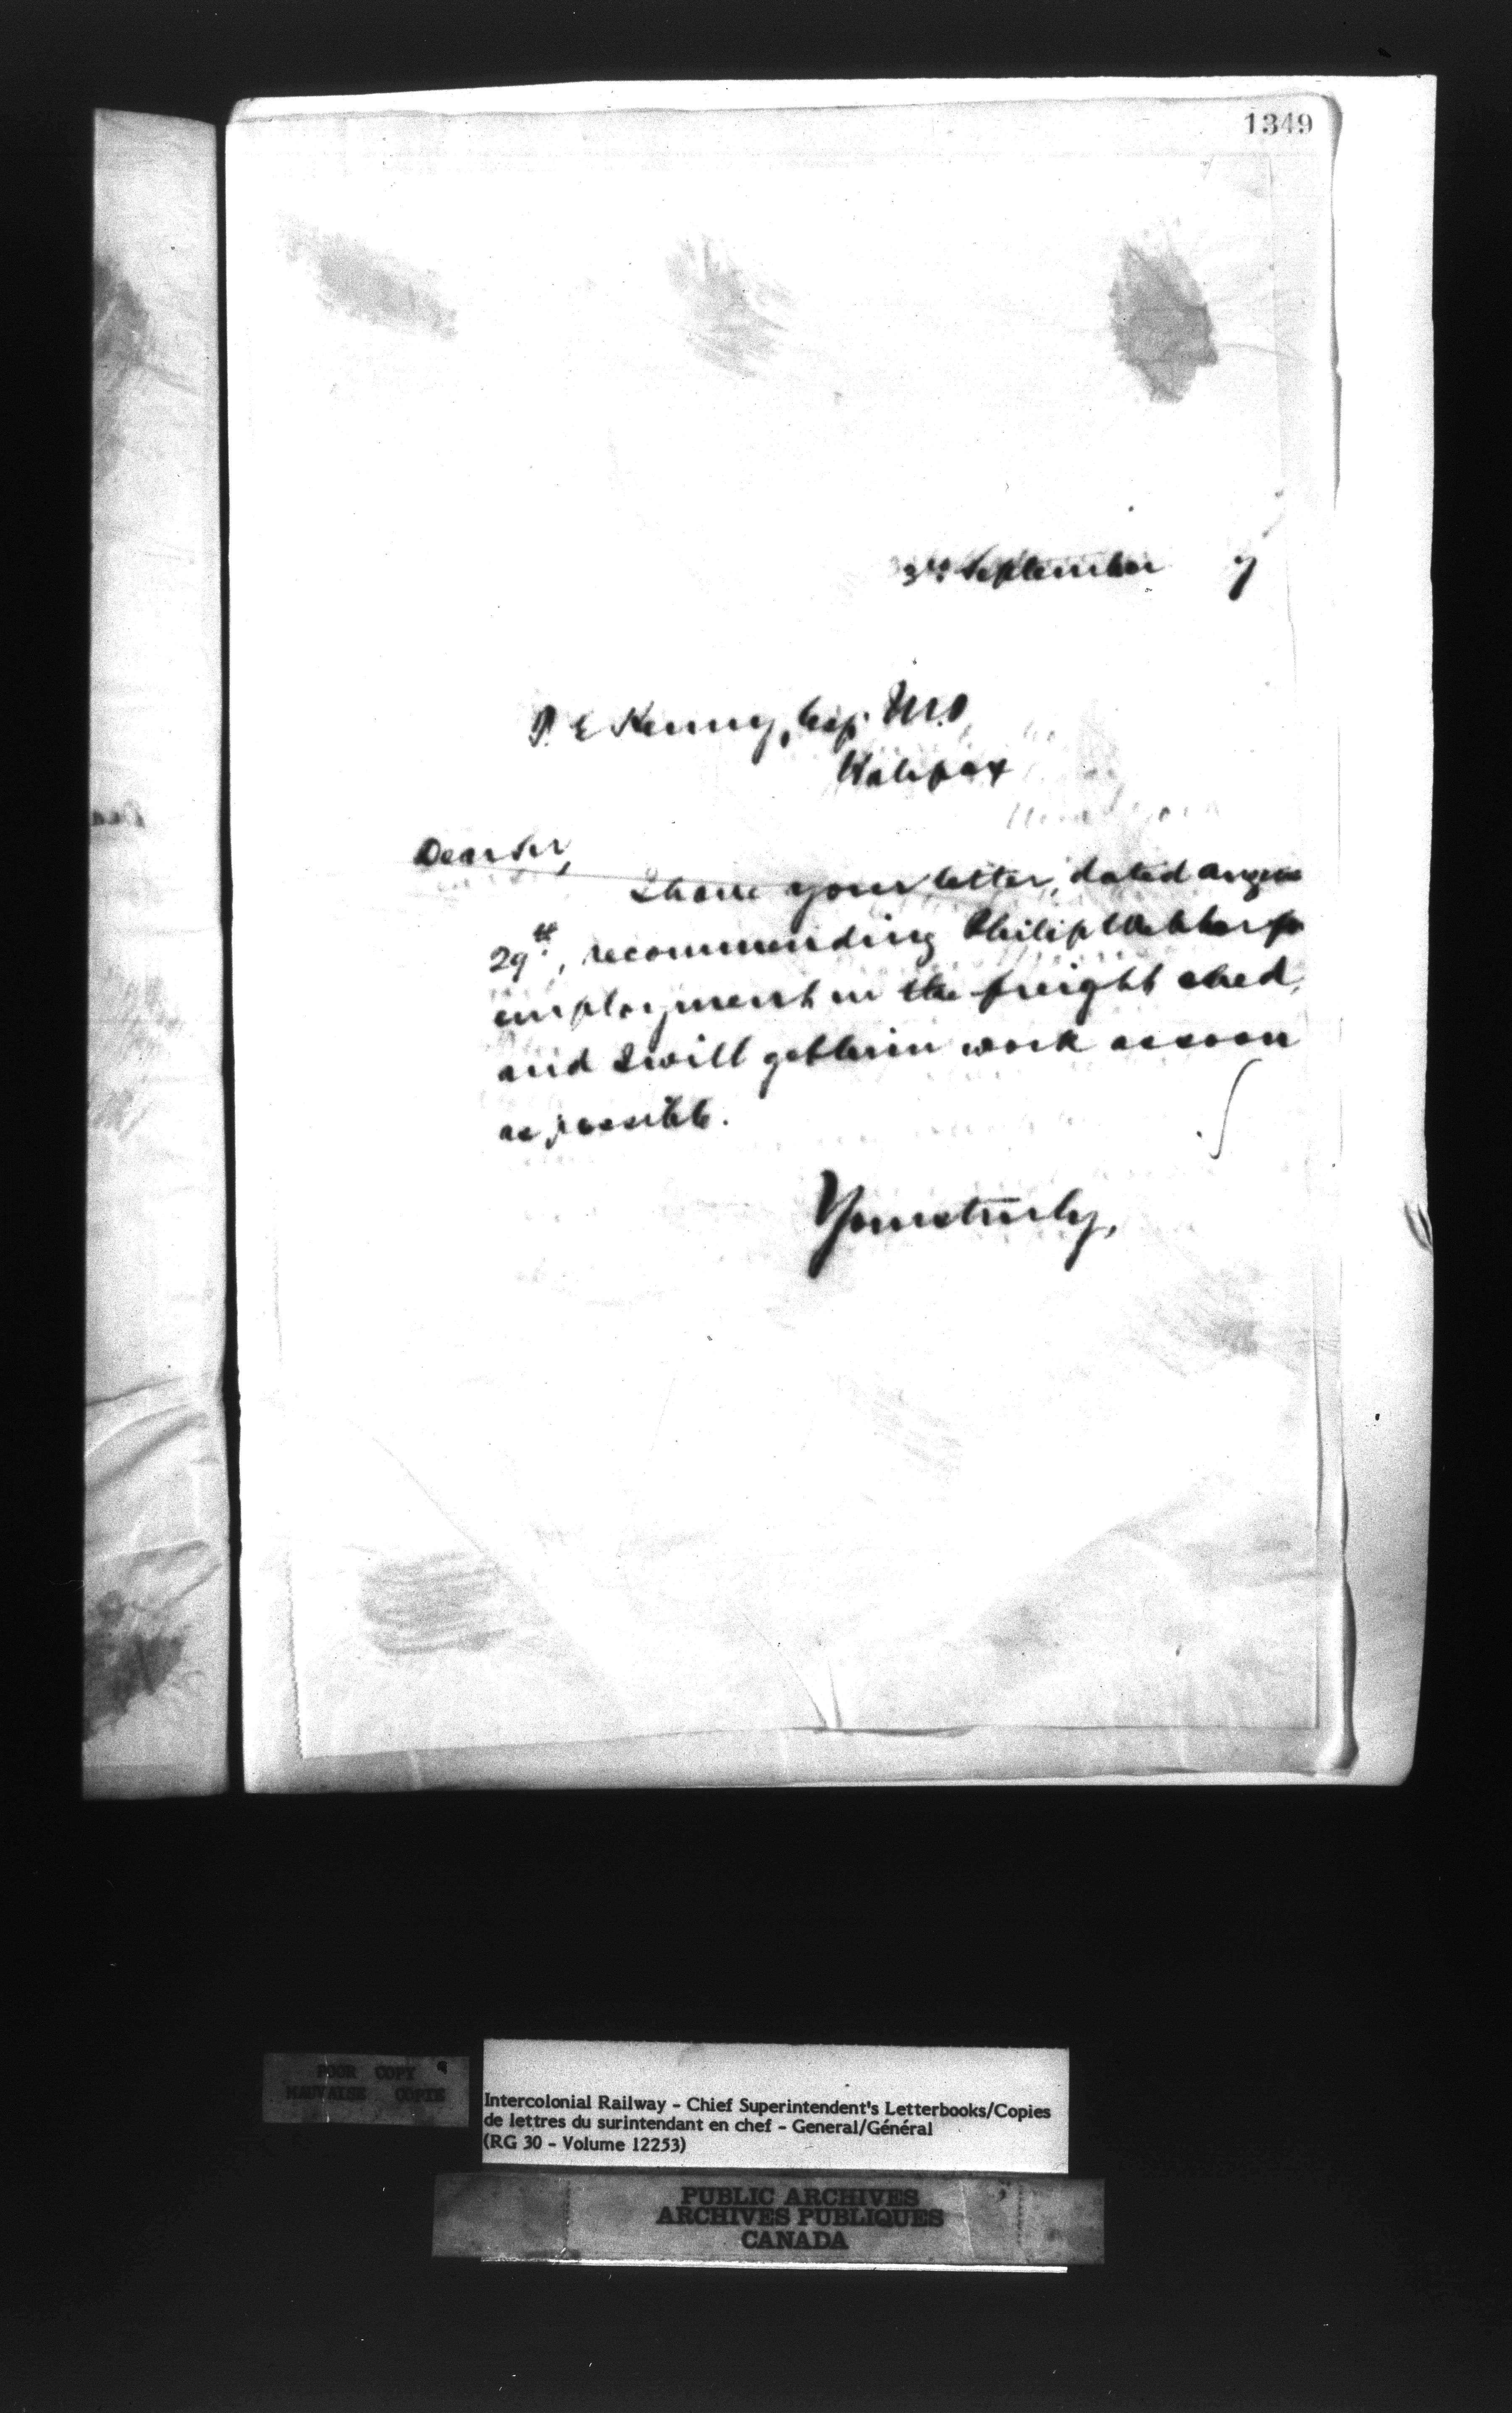 1349
3rd September 7
T. E Kenny, Esq. M.P,
Halifax
Dear Sir,
I have your letter, dated August
29th, recommending Philip Webber for
employment in the freight shed,
and I will get him work as soon
as possible.
Yours truly,
POOR COPY
MAUVAISE COPIE
Intercolonial Railway - Chief Superintendent's Letterbooks/Copies
de lettres du surintendant en chef - General/Général
(RG 30 - Volume 12253)
PUBLIC ARCHIVES
ARCHIVES PUBLIQUES
CANADA